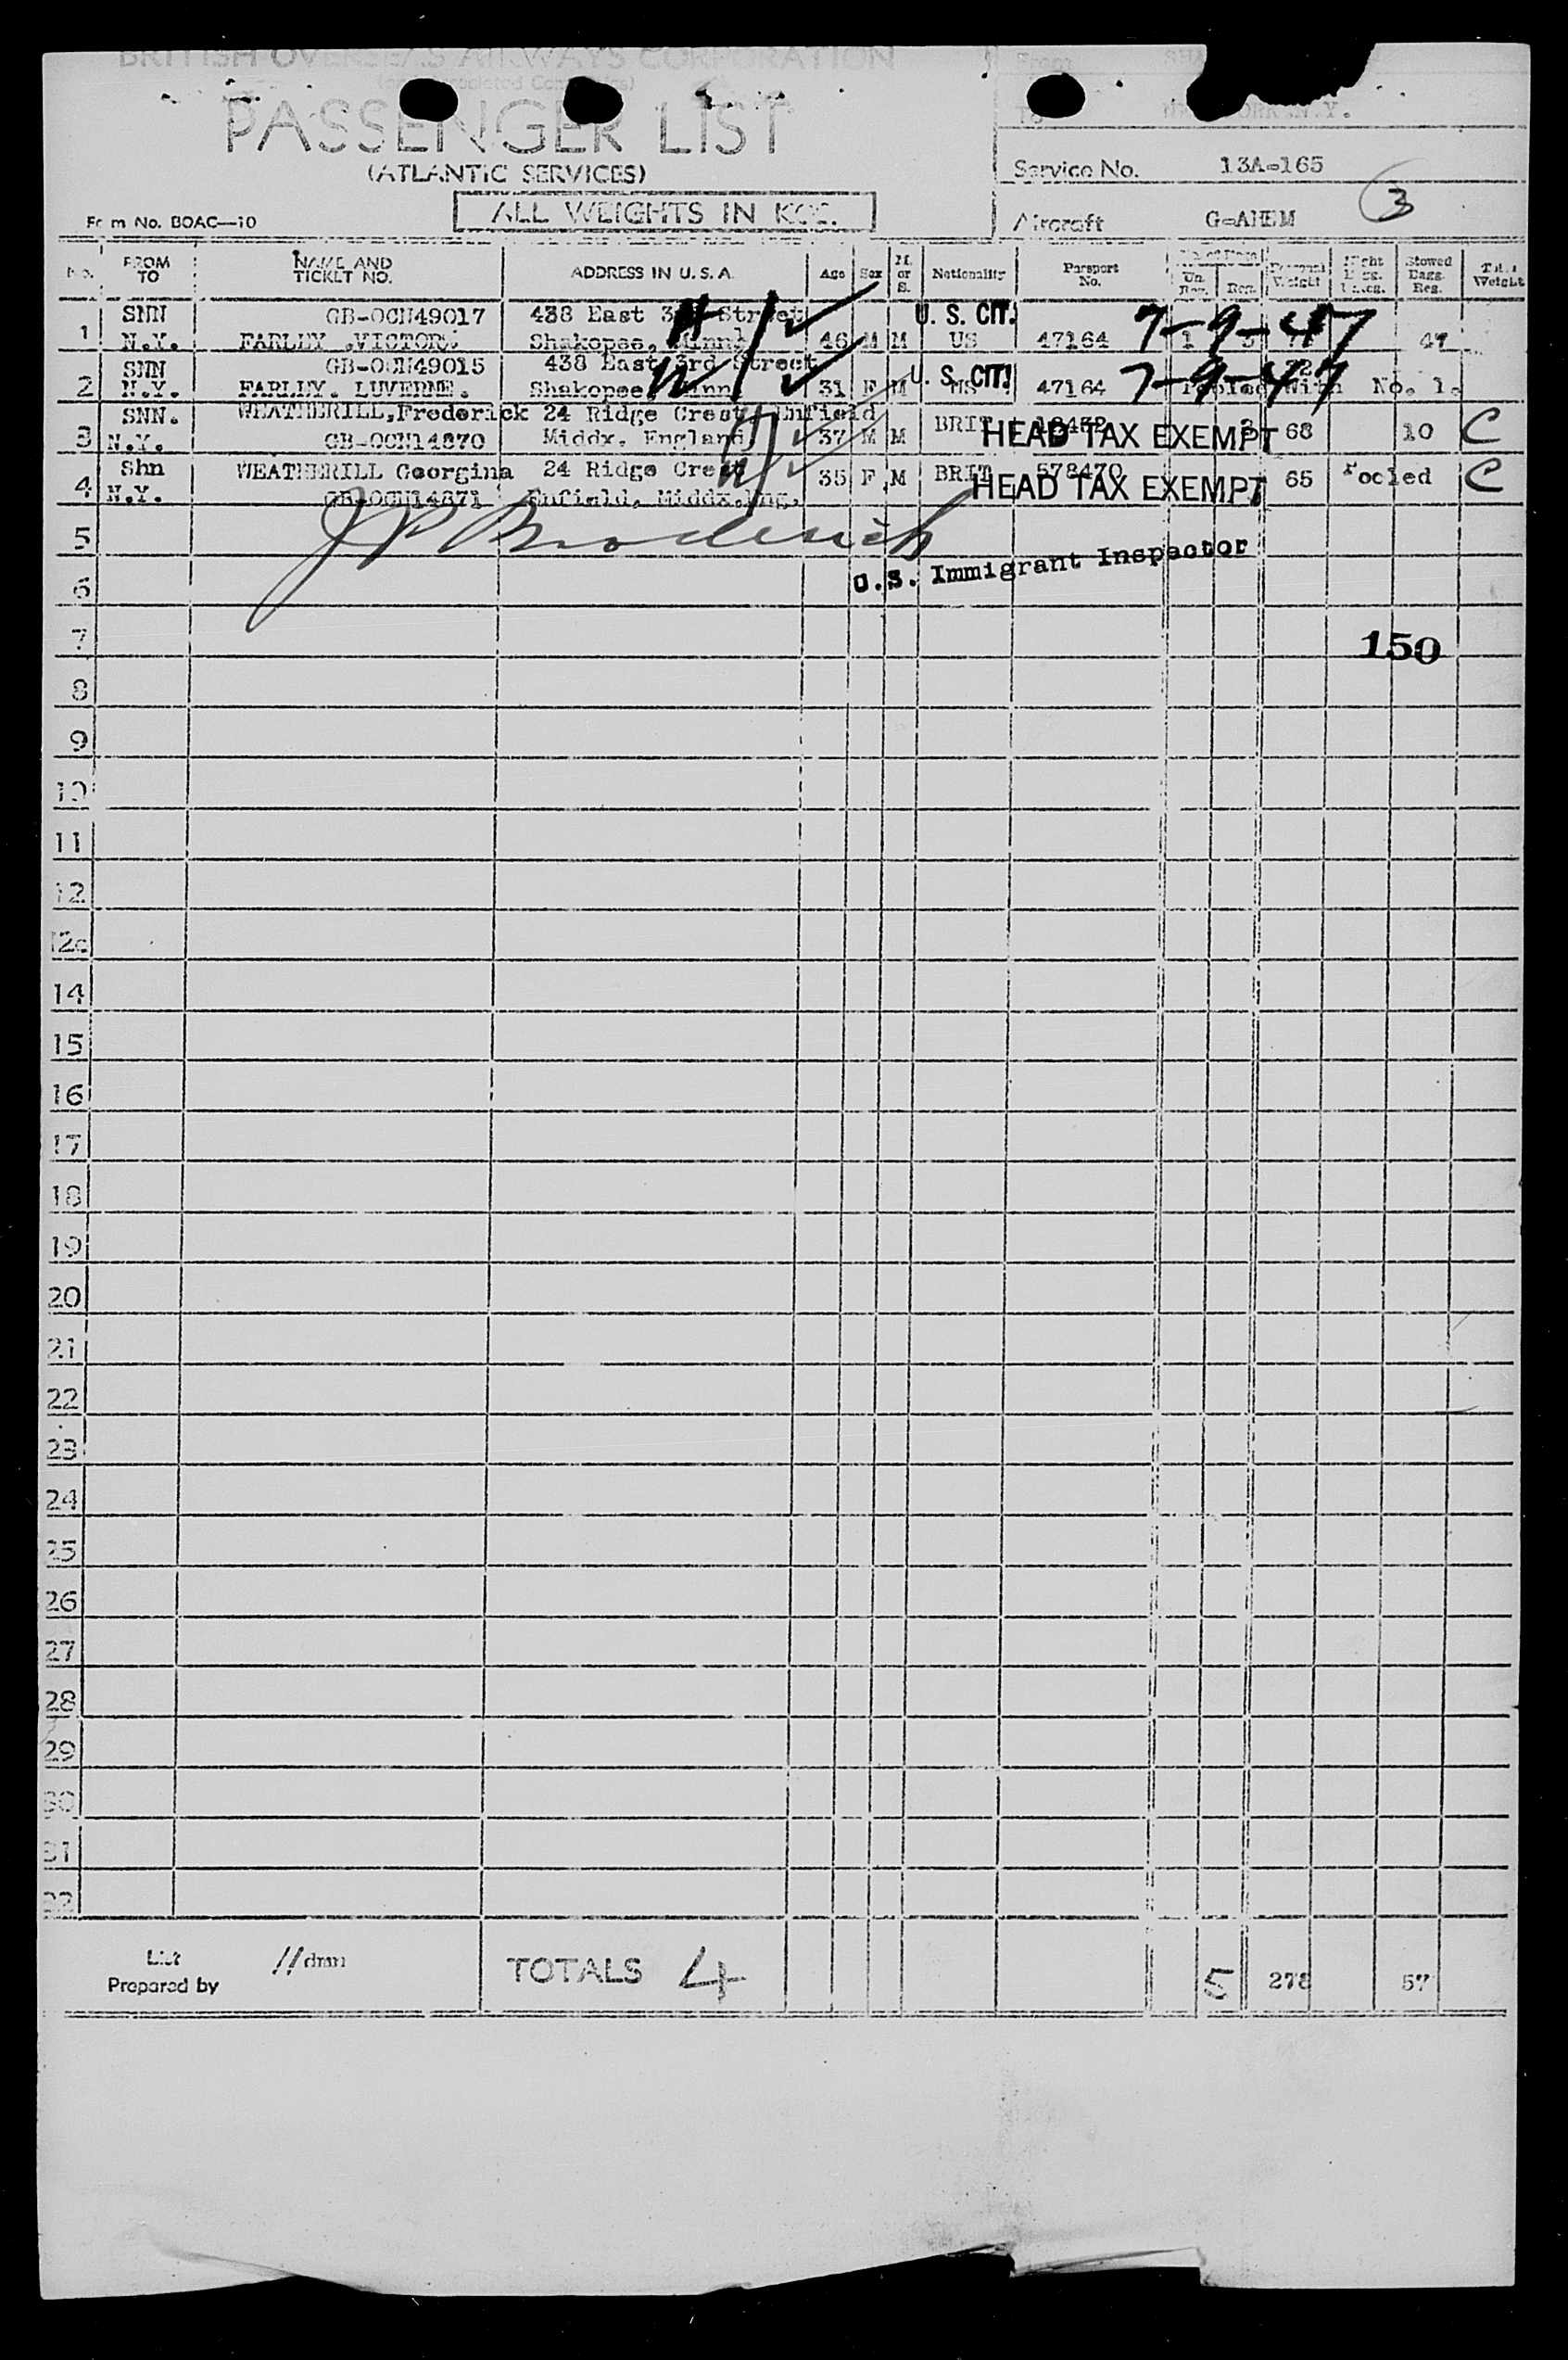 BRITISH OVERSEAS AIRWAYS CORPORATION
PASSENGER LIST
(ATLANTIC SERVICES)
ALL WEIGHTS IN KGS.
Form No. BOAC—10
From
To
Service No. 13A-165
Aircraft G-AHEM
3
No. FROM TO NAME AND TICKET NO. ADDRESS IN U.S.A. Age Sex M. or S. Nationality Passport No. Un. Reg. Reg. Personal Weight Stowed Bagg. Reg. Total Weight
SNN GB-OCN49017 438 East 3rd Street U. S. CIT. 7-9-47
1 N.Y. FARLEY .VICTOR. Shakopee, Minn. 46 M M US 47164 1 47
SNN GB-OCN49015 438 East 3rd Street U. S. CIT. 7-9-47
2 N.Y. FARLEY. LUVERNE. Shakopee, Minn 31 F M US 47164 Pooled With No. 1.
SNN. WEATHERILL,Frederick 24 Ridge Crest, Enfield BRIT
3 N.Y. GB-OCN14870 Middx. England 37 M M HEAD TAX EXEMPT 68 10 C
Shn WEATHERILL Georgina 24 Ridge Crest 35 F M BRIT 578470 65 Pooled C
4 N.Y. GB-OCN14871 Enfield, Middx.Eng. HEAD TAX EXEMPT
J P Broderick
5
U.S. Immigrant Inspector
6
7
150
8
9
10
11
12
12c
14
15
16
17
18
19
20
21
22
23
24
25
26
27
28
29
30
31
32
List Prepared by //dmn TOTALS 4 5 278 57